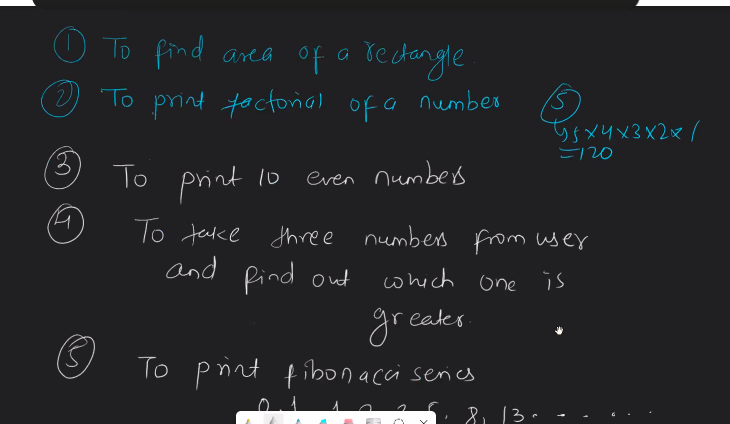 ① To find area of a rectangle.
② To print factorial of a number
5
↳ 5×4×3×2×1
=120
③ To print 10 even numbers
④ To take three numbers from user
and find out which one is
greater.
⑤ To print fibonacci series
8, 13